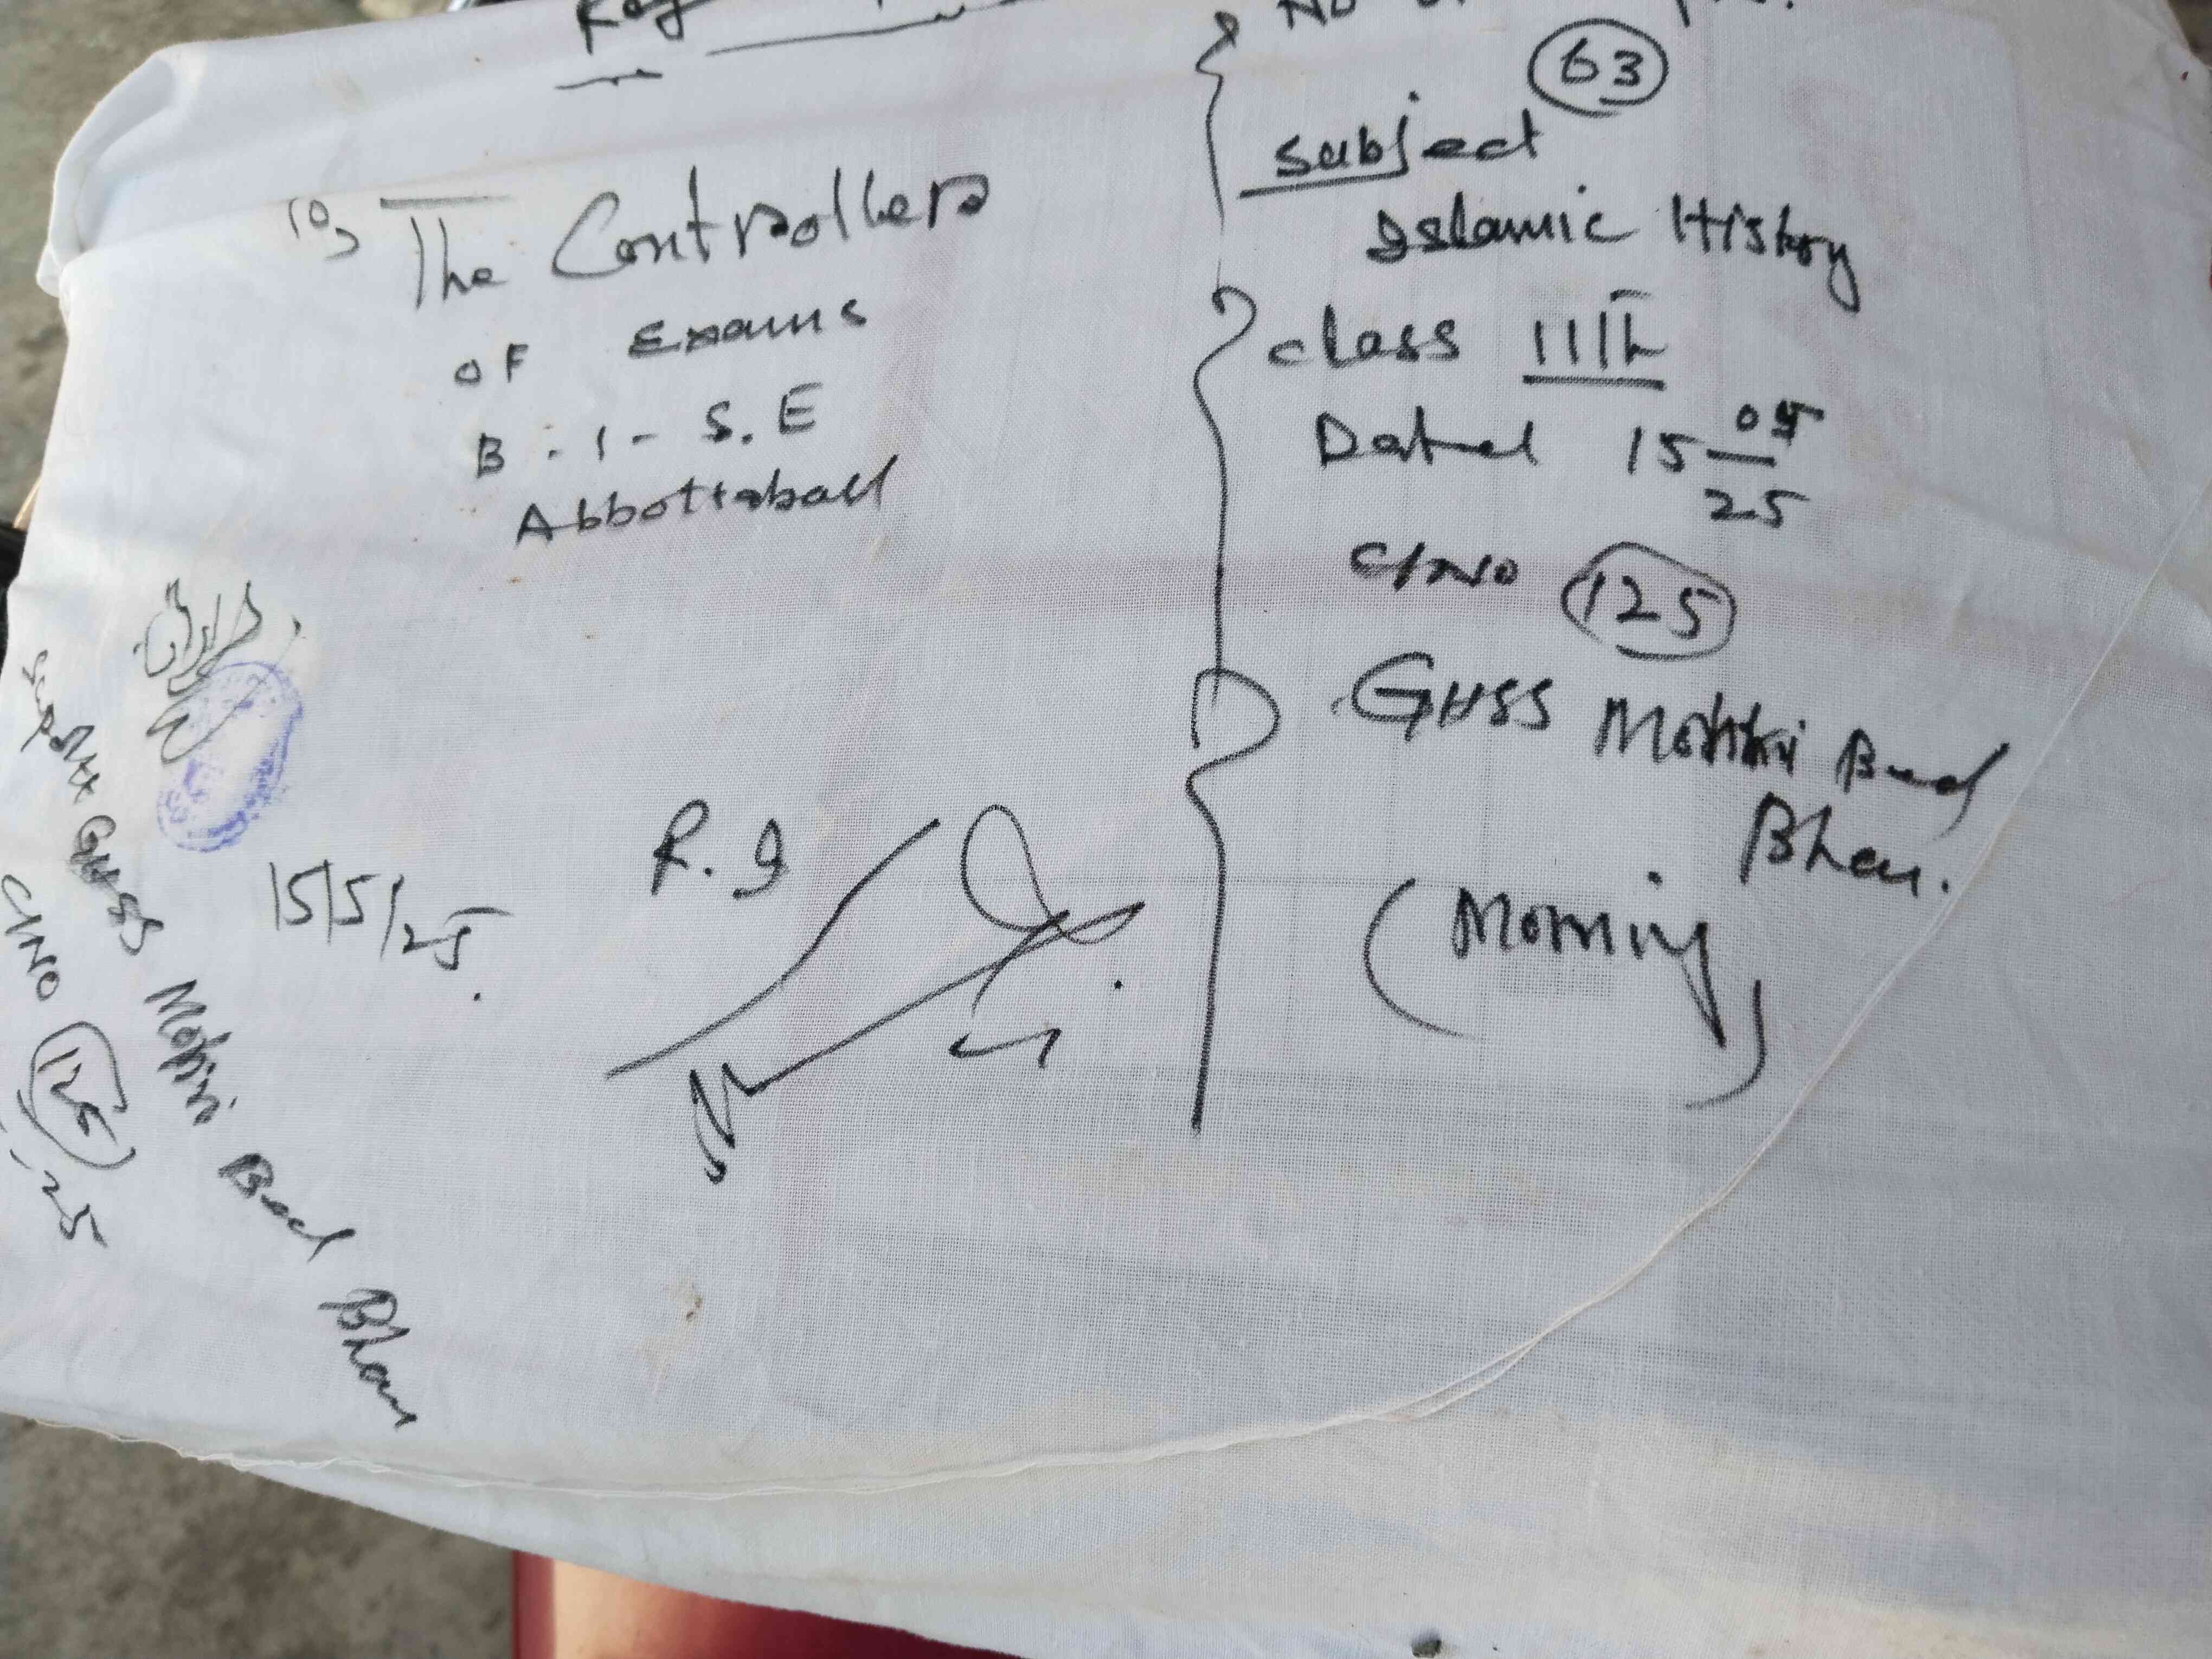 No
63
subject
Islamic History
class 11th
Dated 15 05
25
C/No 125
GHSS Mohri Bad
Bhan.
(Morning)
To,
The Controllers
OF Exams
B.I-S.E
Abbottabad
R.I
15/5/25.
Supdtt GHSS Mohri Bad Bhan
C/No 125